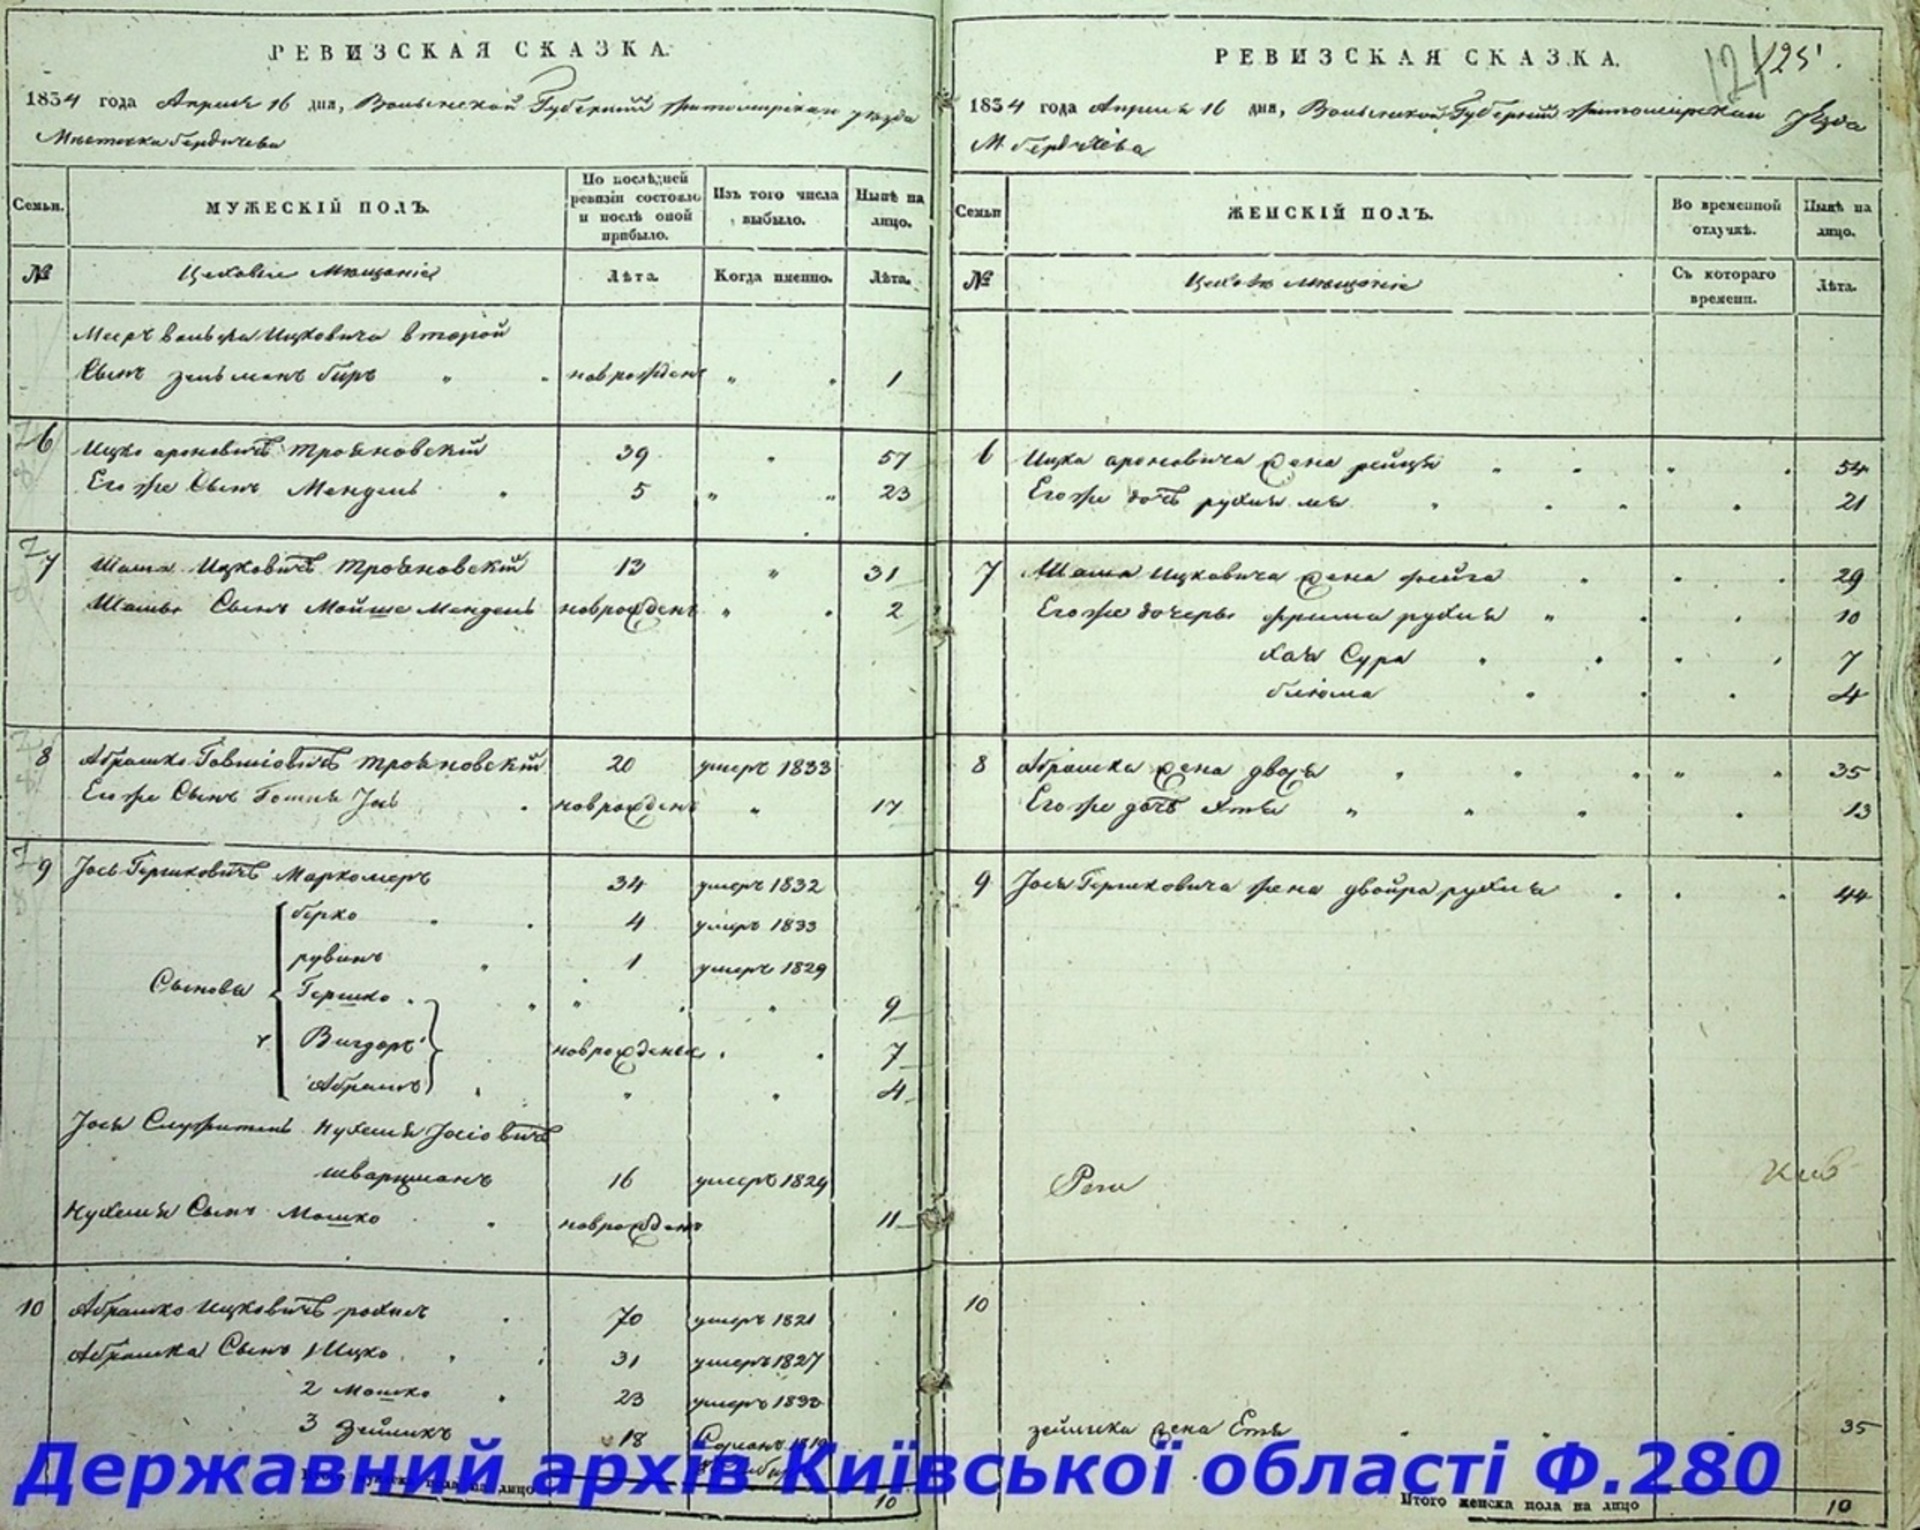 РЕВИЗСКАЯ СКАЗКА.
1834 года Апреля 16 дня, Волынской Губернии Житомирскаго уезда
Местечка Бердичева
Семьи.
МУЖЕСКІЙ ПОЛЪ.
По послѣдней ревизіи состояло и послѣ оной прибыло.
Изъ того числа выбыло.
Нынѣ на лицо.
№
Цеховые Мещание
Лѣта.
Когда именно.
Лѣта.
Меера Вольфа Ицковича второй
Сынъ Зельманъ Беръ новрожденъ 1
6 Ицко Ароновичъ Трояновскій 39 57
Его же Сынъ Мендель 5 23
7 Шама Ицковичъ Трояновскій 13 31
Шамы Сынъ Мойше Мендель новрожденъ 2
8 Абрашко Говшіовичъ Трояновскій 20 умеръ 1833
Его же Сынъ Гошия Іось новрожденъ 17
9 Іось Гершковичъ Маркомеръ 34 умеръ 1832
Берко 4 умеръ 1833
рувинъ 1 умеръ 1829
Сыновья Гершко 9
Вигдоръ новрожденые 7
Абрамъ 4
Іося Служитель Нухемъ Іосіовичъ
шварцманъ 16 умеръ 1829
Нухема Сынъ Мошко новрожденъ 11
10 Абрашко Ицковичъ рохисъ 70 умеръ 1821
Абрашка Сынъ 1 Ицко 31 умеръ 1827
2 Мошко 23 умеръ 1830
3 Зейликъ 18
пола на лицо 10
РЕВИЗСКАЯ СКАЗКА.
125
1834 года Апреля 16 дня, Волынской Губернии Житомирскаго уезда
М Бердичева
Семьи
ЖЕНСКІЙ ПОЛЪ.
Во временной отлучкѣ.
Нынѣ на лицо.
№
Цеховые Мещание
Съ котораго времени.
Лѣта.
6 Ицка Ароновича жена рейзя 54
Его же дочь рухля 21
7 Шама Ицковича жена фейга 29
Его же дочеры фрима рухля 10
хая Сура 7
блюма 4
8 Абрашка жена двося 35
Его же дочь Хтя 13
9 Іося Гершковича жена двойра рухля 44
10
зейлика жена Етя 35
Итого женска пола на лицо 10
Державний архів Київської області Ф.280